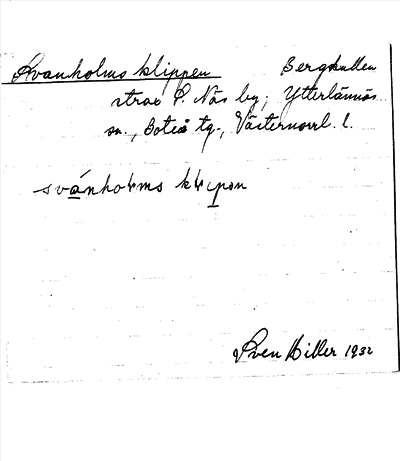 Svanholms klippen Bergkullen
strax S. Näs by, Ytterlännäs
sn., Boteå tg., Västernorrl. l.
svánholms klipən
Sven Hiller 1932